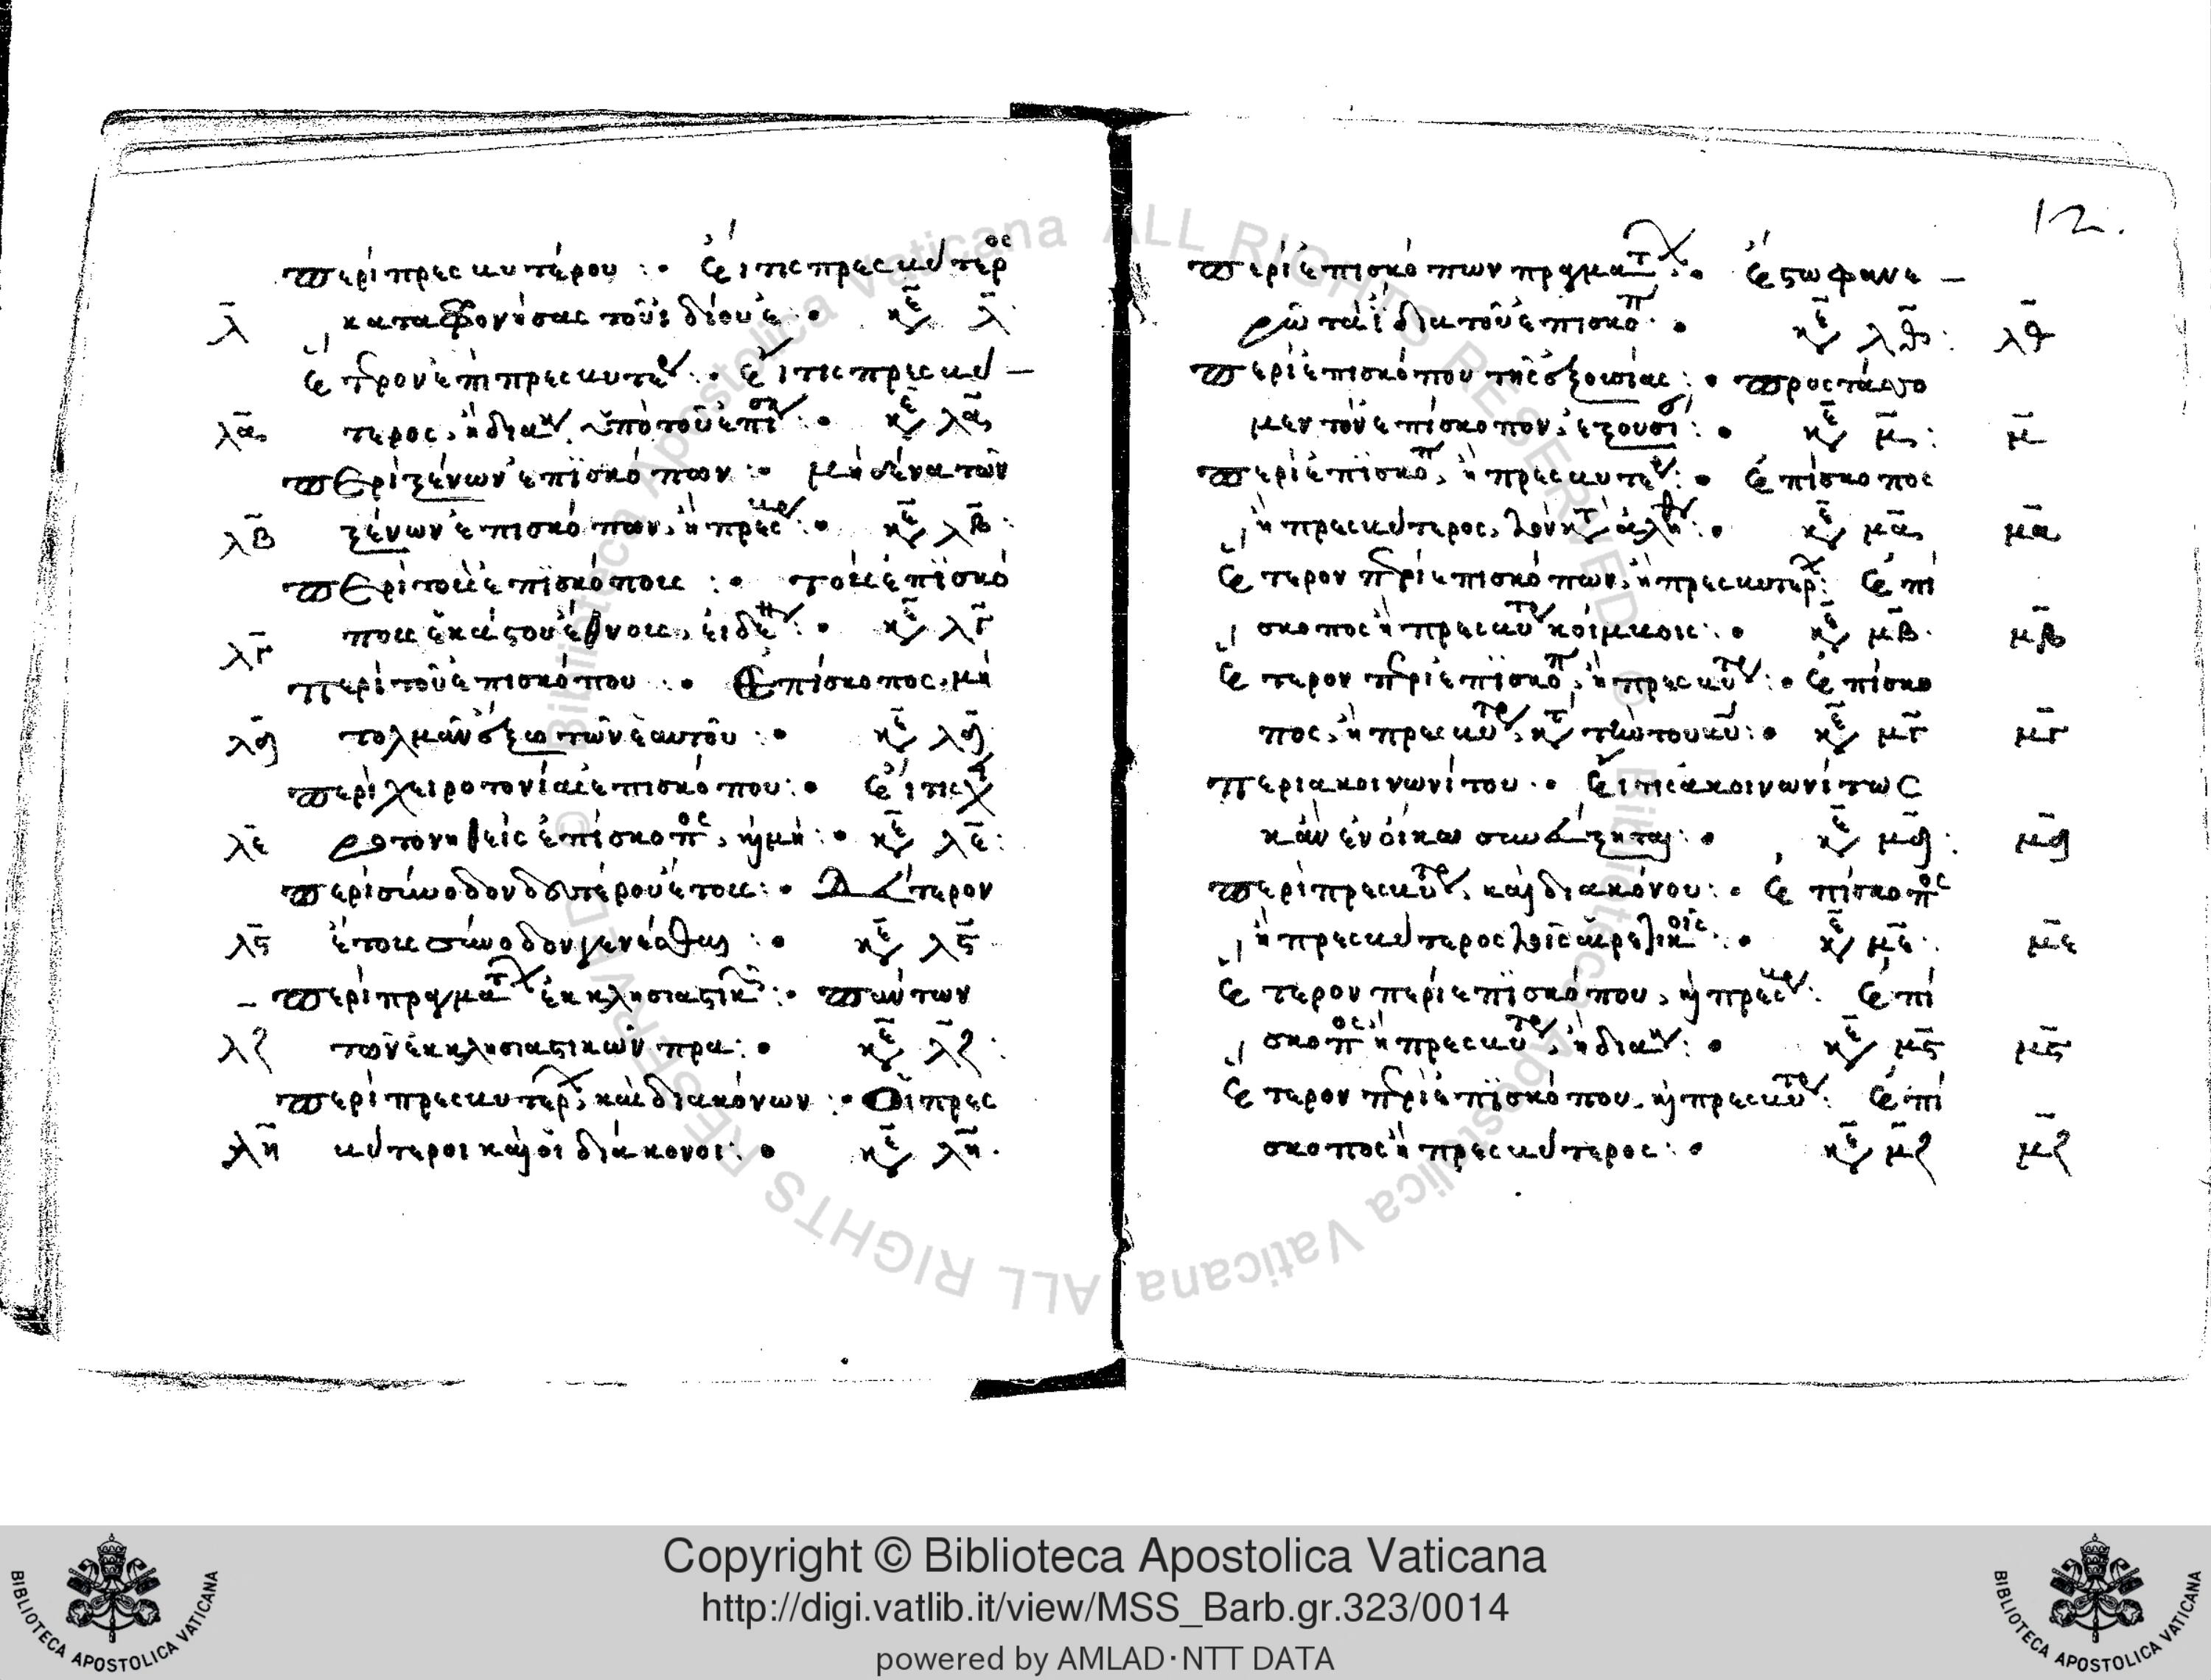 περὶ πρεσβυτέρου :· Εἴ τις πρεσβύτερος
λ̄ καταφρονήσας τοῦ ἰδίου ἐ :· κε λ̄
Ἕτερον ἐπὶ πρεσβυτε :· Εἴ τις πρεσβύ –
λᾱ τερος, ἢ διακ ὑπὸ τοῦ ἐπισκ :· κε λᾱ
περὶ ξένων ἐπϊσκόπων :· μηδένα τῶν
λβ̄ ξένων ἐπισκόπων, ἢ πρεσβ :· κε λβ̄ :
περὶ τοὺς ἐπϊσκόπους :· τοὺς ἐπϊσκό
λγ̄ πους ἑκάστου ἔθνους, εἰδέν :· κε λγ̄
περὶ τοῦ ἐπισκόπου :· Ἐπίσκοπος, μὴ
λδ̄ τολμᾶν ἔξω τῶν ἑαυτοῦ :· κε λδ̄
περὶ χειροτονίας ἐπισκόπου :· Εἴ τις χει
λε̄ ροτονηθεὶς ἐπίσκοπος, μὴ :· κε λε̄ :
περὶ σύνοδον δευτέρου ἔτους :· Δεύτερον
λϛ̄ ἔτους σύνοδον γενέσθαι :· κε λϛ̄
– περὶ πραγμάτων ἐκκλησιαστικῶν :· πάντων
λζ̄ τῶν ἐκκλησιαστικῶν πρα :· κε λζ̄ :
περὶ πρεσβυτέρων, καὶ διακόνων :· Οἱ πρεσ
λη̄ βύτεροι καὶ οἱ διάκονοι :· κε λη̄ .
12.
περὶ ἐπισκόπων πραγμάτων :· Ἔστω φανε –
ρὰ τὰ ἴδια τοῦ ἐπισκόπ :· κε λθ̄ : λθ̄
περὶ ἐπισκόπου τῆς ἐξουσίας :· προστάσσο
μεν τὸν ἐπίσκοπον, ἐξουσί :· κε μ̄ : μ̄
περὶ ἐπϊσκόπ, ἢ πρεσβυτε :· Ἐπίσκοπος
ἢ πρεσβύτερος, :· κε μᾱ μᾱ
Ἕτερον περὶ ἐπισκόπων, ἢ πρεσβυτέρων : Ἐπί
σκοπος ἢ πρεσβύτε κοίμβοις :· κε μβ̄ . μβ̄
Ἕτερον περὶ ἐπϊσκόπ, ἢ πρεσβύτε :· Ἐπίσκο
πος, ἢ πρεσβύτε, :· κε μγ̄ μγ̄
περὶ ἀκοινωνίτου :· Εἴ τις ἀκοινωνίτως
κἂν ἐν οἴκω συνεύξηται :· κε μδ̄ : μδ̄
περὶ πρεσβύτε, καὶ διακόνου :· Ἐπίσκοπος
ἢ πρεσβύτερος τοῖς αἱρετικοῖς :· κε με̄ : με̄
Ἕτερον περὶ ἐπϊσκόπου, ἢ πρεσβ : Ἐπί
σκοπος ἢ πρεσβύτε, ἢ διακ :· κε μϛ̄ μϛ̄
Ἕτερον περὶ ἐπϊσκόπου, ἢ πρεσβύτε : Ἐπί
σκοπος ἢ πρεσβύτερος :· κε μζ̄ μζ̄
Copyright © Biblioteca Apostolica Vaticana
http://digi.vatlib.it/view/MSS_Barb.gr.323/0014
powered by AMLAD·NTT DATA
BIBLIOTECA APOSTOLICA VATICANA
BIBLIOTECA APOSTOLICA VATICANA